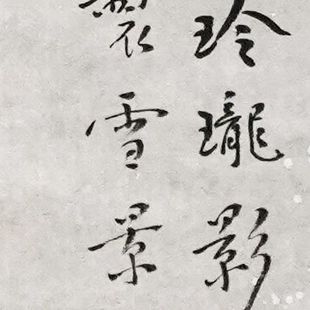 玲瓏影
雪景